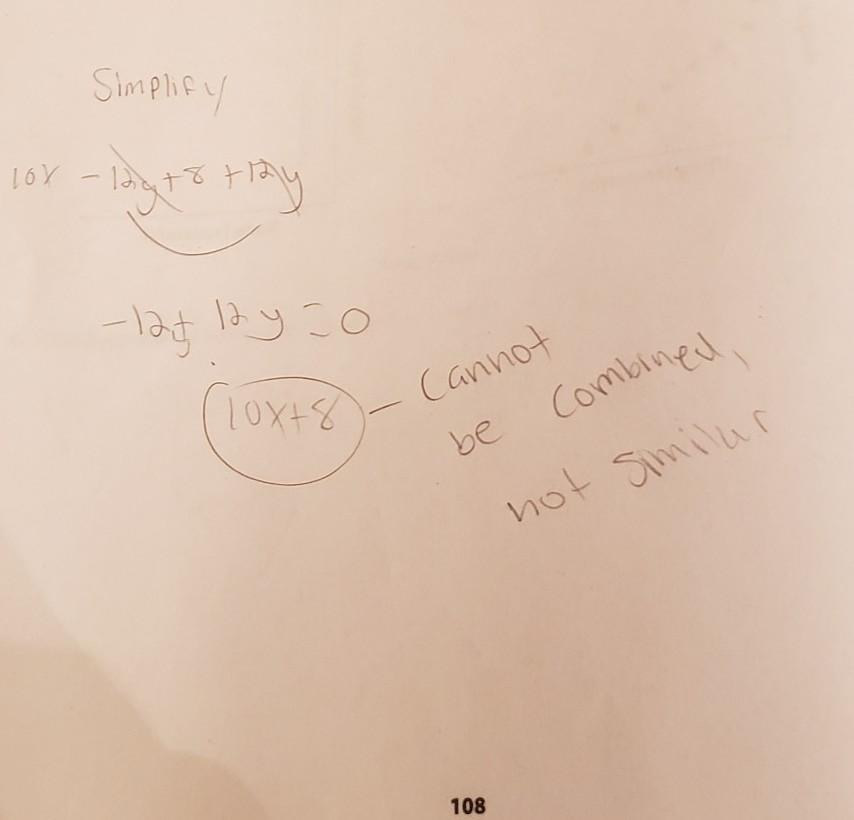 Simplify
10x - 12y + 8 + 12y
-12y + 12y = 0
10x + 8 - Cannot
be combined,
not similar
108